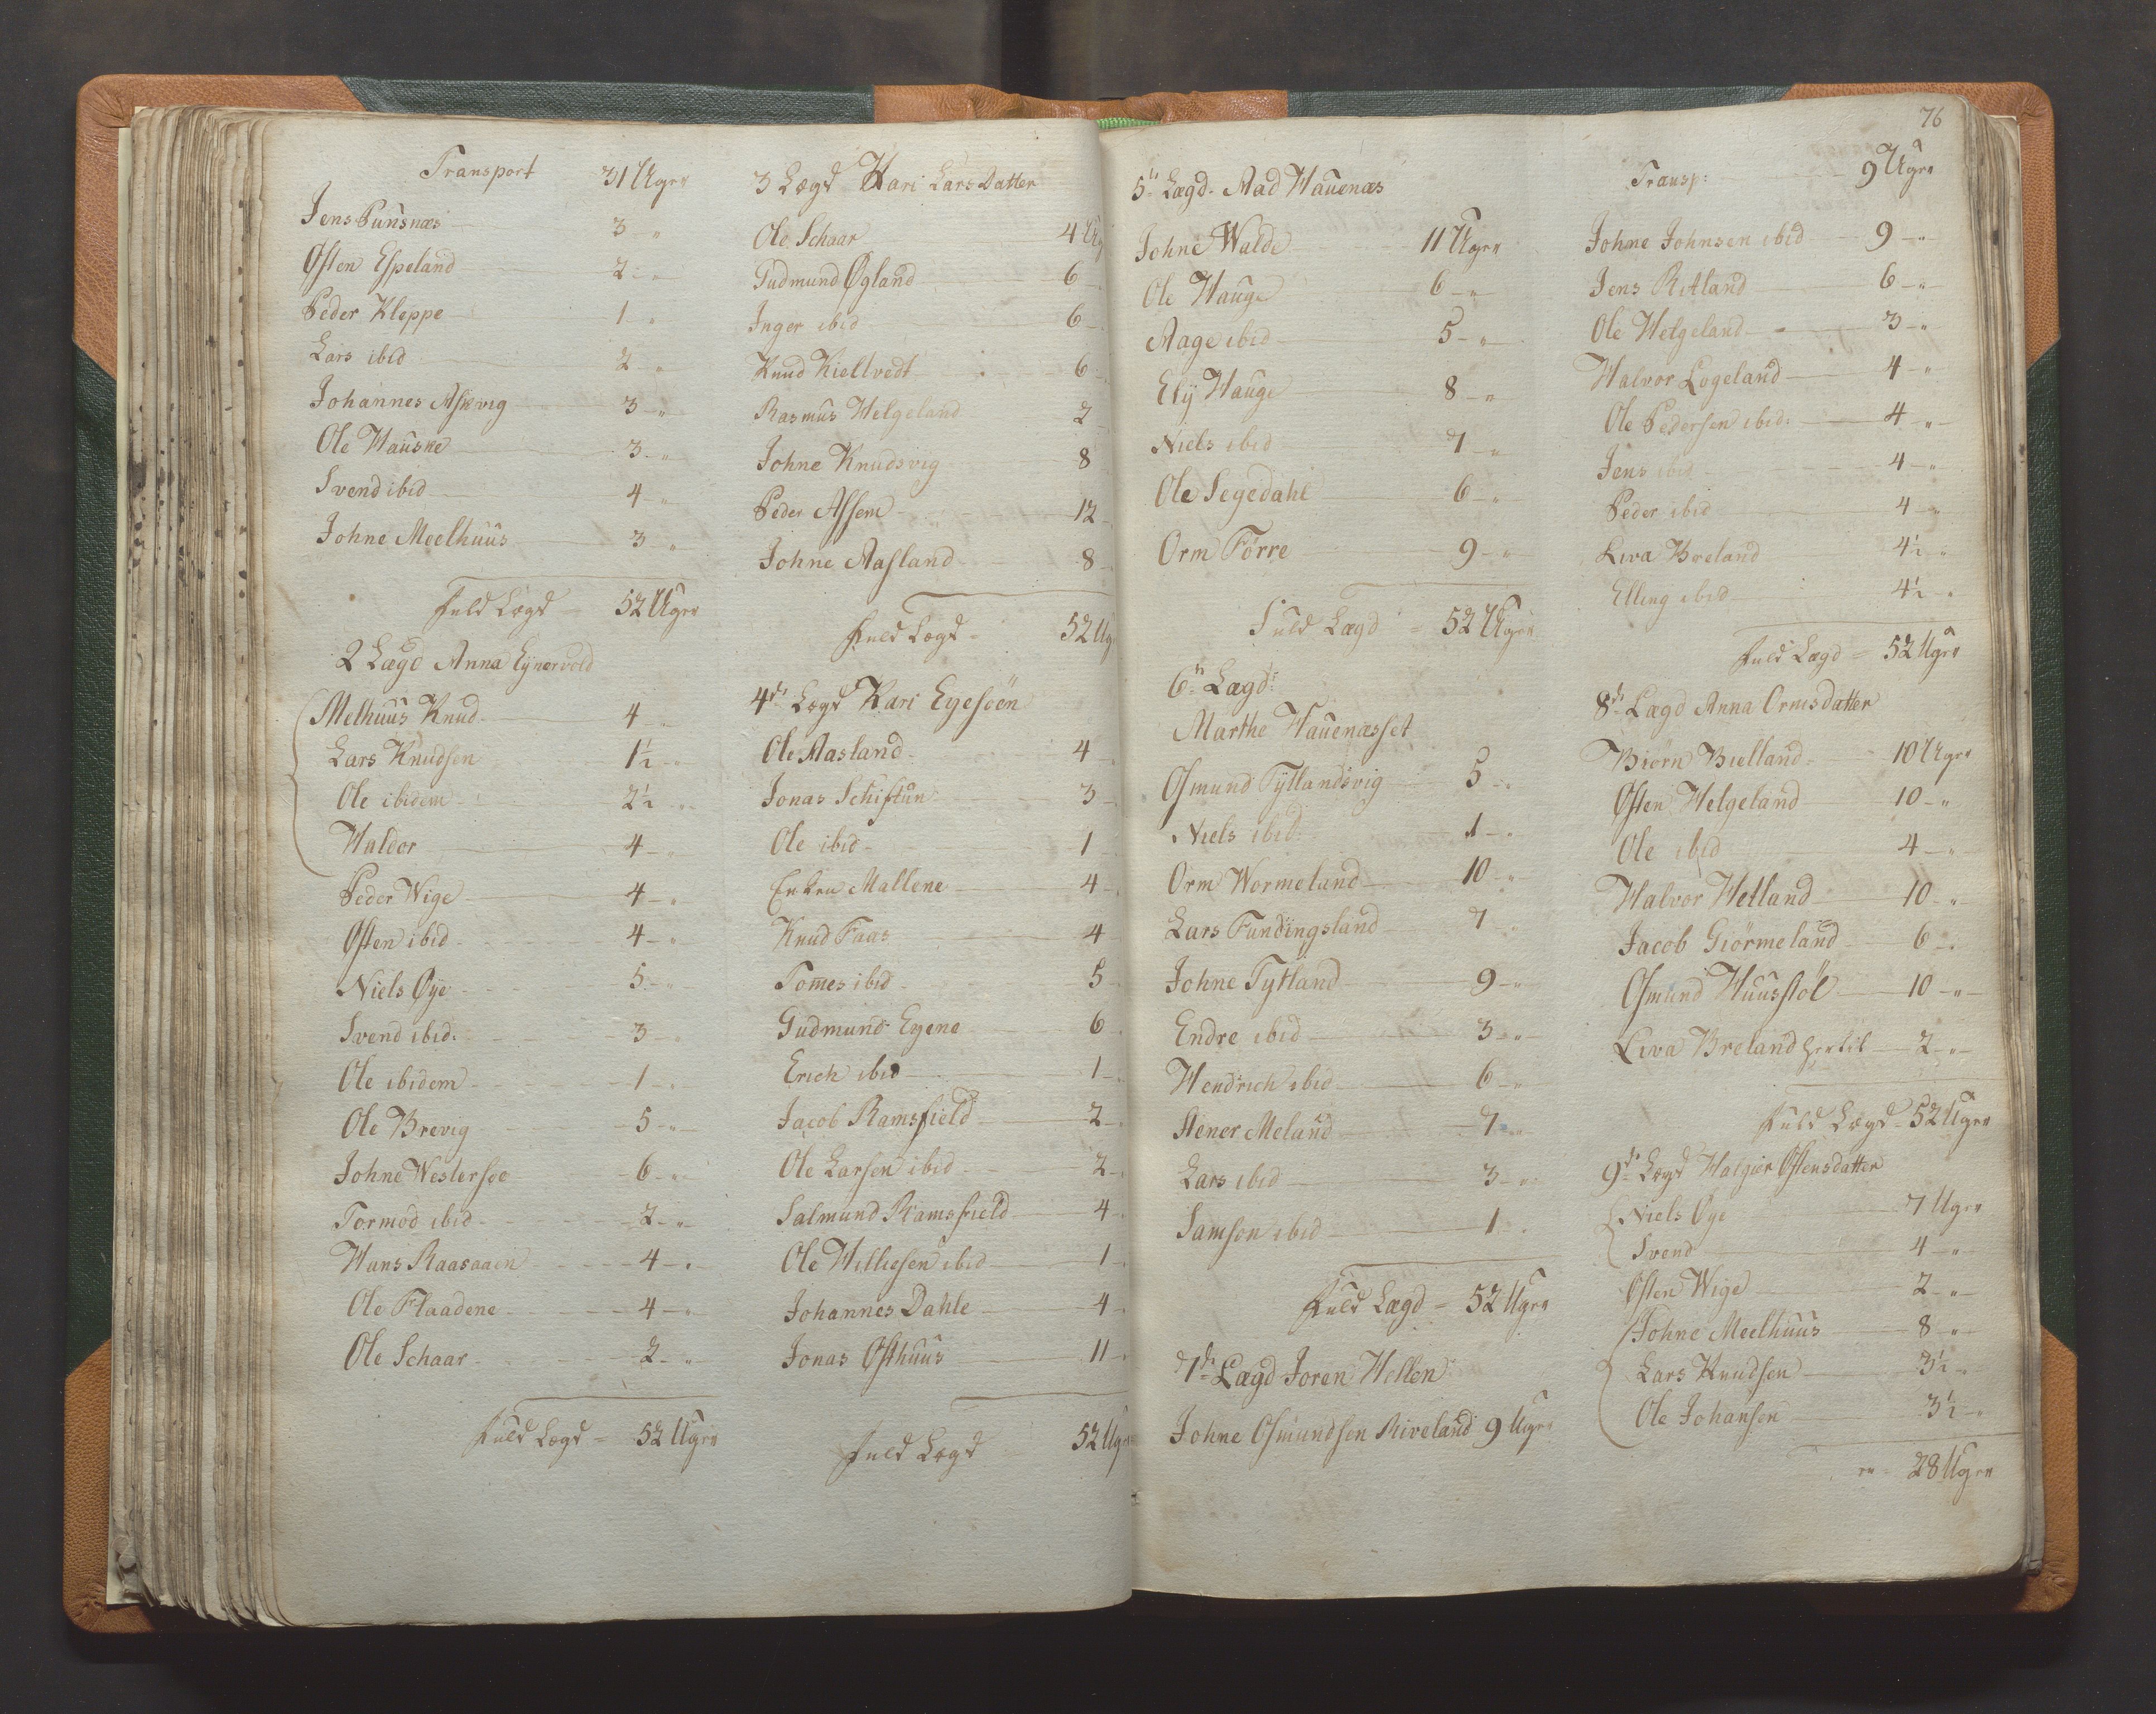 Transport 31 Uger
Jens Punsnæs 3 "
Østen Espeland 2 "
Peder Kleppe 1 "
Lars ibid 2 "
Johannes Askvig 3 "
Ole Hauske 3 "
Svend ibid 4 "
Johne Meelhuus 3 "
fuld Lægd = 52 Uger
2 Lægd Anna Eynervold
Melhuus Knud 4 "
Lars Knudsen 1½ "
Ole ibidem 2½ "
Haldor 4 "
Peder Wige 4 "
Østen ibid 4 "
Niels Øye 5 "
Svend ibid: 3 "
Ole ibidem 1 "
Ole Brevig 5 "
Johne Westersøe 6 "
Tormod ibid 2 "
Hans Raasaaen 4 "
Ole Flaadene 4 "
Ole Schaar 2 "
fuld Lægd = 52 Uger
3 Lægd Kari Lars Datter
Ole Schaar 4 Ug
Gudmund Øgland 6
Inger ibid 6
Knud Kieltvedt 6
Rasmus Helgeland 2
Johne Knudsvig 8
Peder Assem 12
Johne Aasland 8
fuld Lægd = 52 Ug
4de Lægd Kari Egesöen
Ole Aasland 4
Jonas Schiftun 3
Ole ibid 1
Enken Mallene 4
Knud Faas 4
Tom̅es ibid 5
Gudmund Eyene 6
Erich ibid 1
Jacob Ramsfield 2
Ole Larsen ibid 2
Salmund Ramsfield 4
Ole Williesen ibid 1
Johannes Dahle 4
Jonas Østhuus 11
fuld Lægd 52 Uger
76
5te Lægd. Aad Hauenæs
Johne Walde 11 Uger
Ole Hauge 6 "
Aage ibid 5 "
Elÿ Hauge 8 "
Niels ibid 7 "
Ole Segedahl 6 "
Orm Förre 9 "
fuld Lægd = 52 Uger
6te Lægd:
Marthe Hauenæsset
Osmund Tÿtlandsvig 5 "
Niels ibid: 1 "
Orm Wormeland 10 "
Lars Fundingsland 7 "
Johne Tÿtland 9 "
Endre ibid 3 "
Hendrich ibid 6 "
Stener Meland 7 "
Lars ibid 3 "
Samson ibid 1 "
fuld Lægd = 52 Uger
7de Lægd Joren Hellen
Johne Osmundsen Riveland 9 Uger
Transp: 9 Uger
Johne Johnsen ibid 9 "
Jens Ritland 6 "
Ole Helgeland 3 "
Halvor Logeland 4 "
Ole Pedersen ibid: 4 "
Jens ibid 4 "
Peder ibid 4 "
Liva Breland 4½ "
Elling ibid 4½ "
fuld Lægd = 52 Uger
8de Lægd Anna Ormsdatter
Biörn Bielland 10 Uger
Østen Helgeland 10 "
Ole ibid 4 "
Halvor Hetland 10 "
Jacob Giörmeland 6 "
Osmund Huusstöl 10 "
Liva Breland hertil 2 "
fuld Lægd = 52 Uger
9de Lægd Halgier Østensdatter
Niels Øye 7 Uger
Svend 4 "
Østen Wige 2 "
Johne Meelhuus 8 "
Lars Knudsen 3½ "
Ole Johansen 3½ "
er = 28 Uger